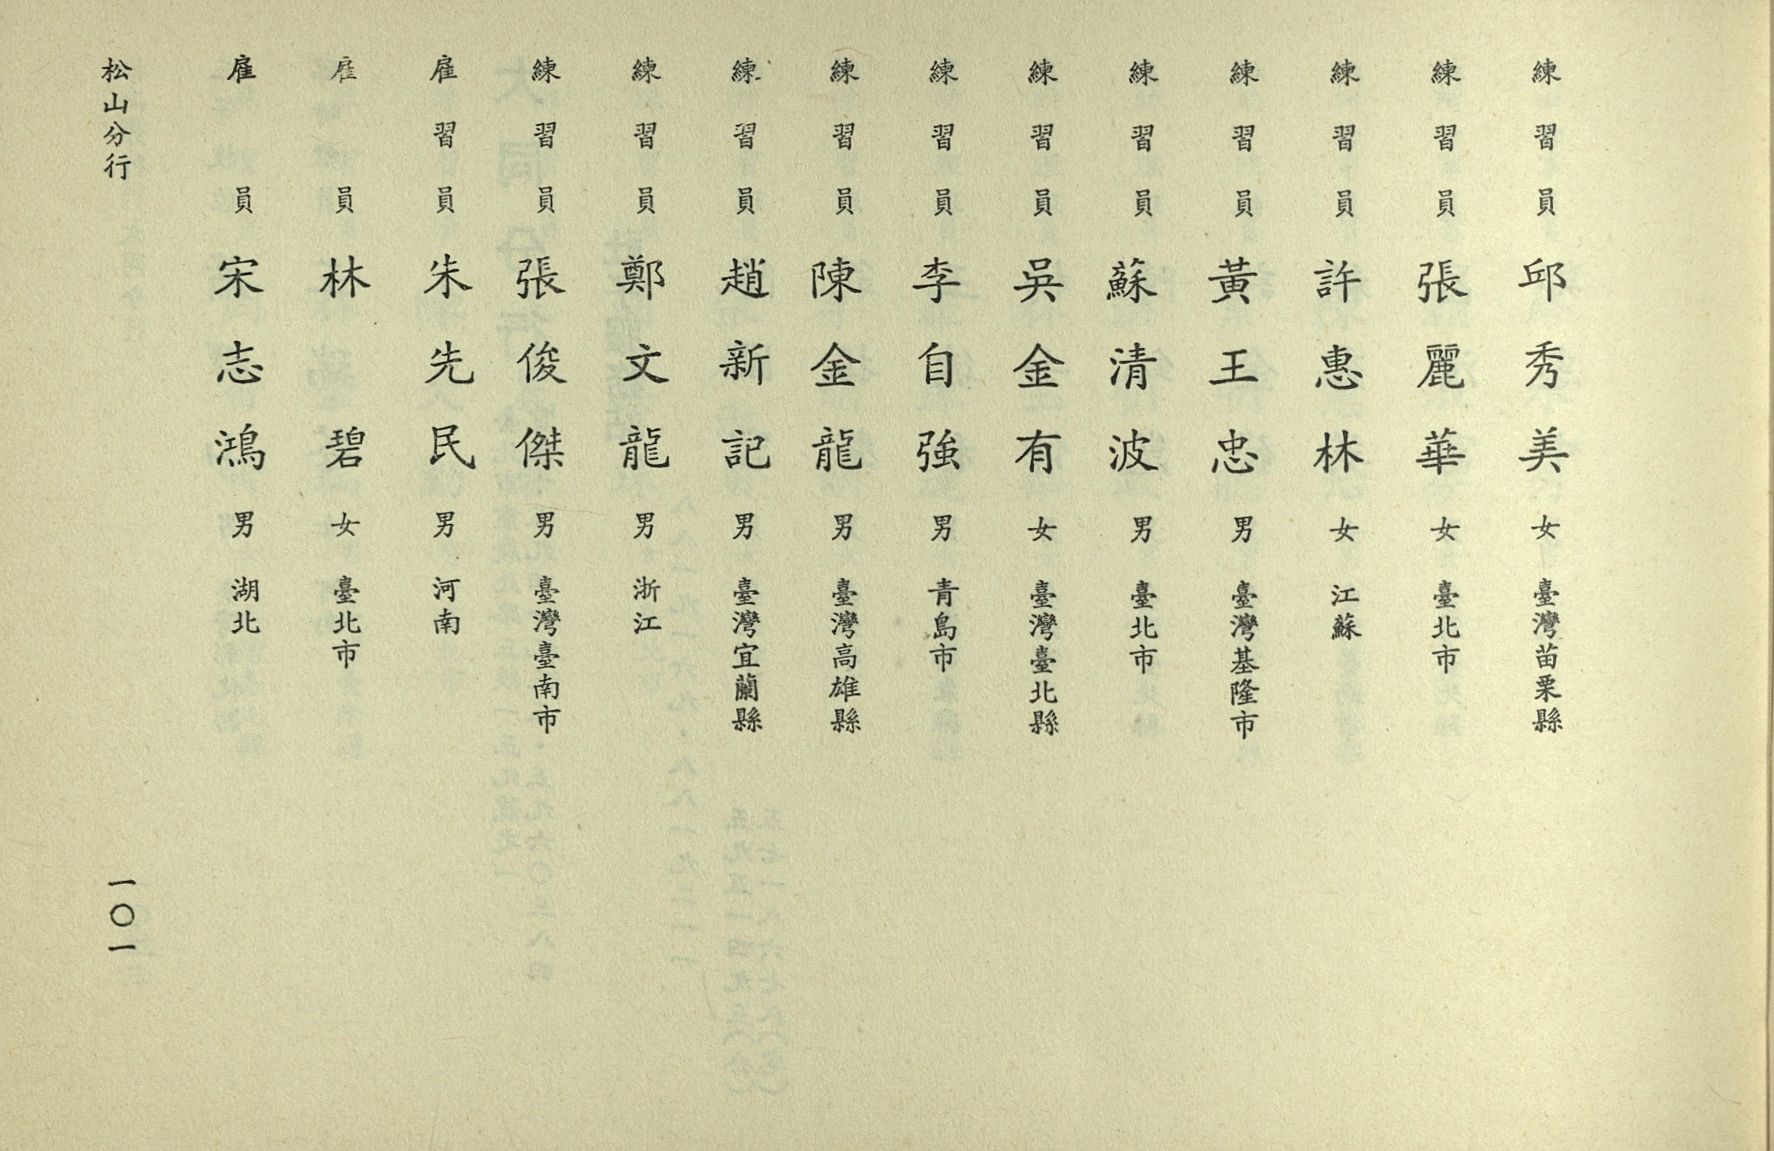 練習員 邱秀美 女 臺灣苗栗縣
練習員 張麗華 女 臺北市
練習員 許惠林 女 江蘇
練習員 黃王忠 男 臺灣基隆市
練習員 蘇清波 男 臺北市
練習員 吳金有 女 臺灣臺北縣
練習員 李自強 男 青島市
練習員 陳金龍 男 臺灣高雄縣
練習員 趙新記 男 臺灣宜蘭縣
練習員 鄭文龍 男 浙江
練習員 張俊傑 男 臺灣臺南市
雇習員 朱先民 男 河南
雇員 林碧 女 臺北市
雇員 宋志鴻 男 湖北
松山分行
一〇一